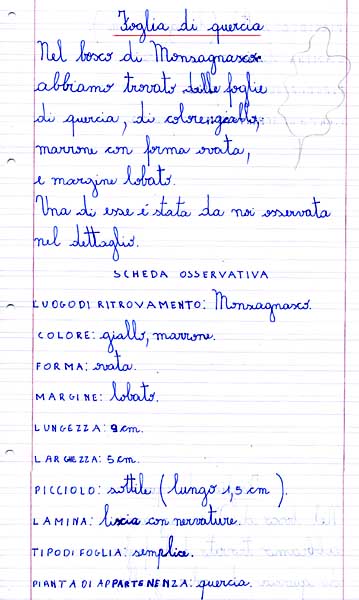 Foglia di quercia
Nel bosco di Monsagnasco
abbiamo trovato delle foglie
di quercia, di colore giallo,
marrone con forma ovata,
e margine lobato.
Una di esse é stata da noi osservata
nel dettaglio.
SCHEDA OSSERVATIVA
LUOGO DI RITROVAMENTO: Monsagnasco.
COLORE: giallo, marrone.
FORMA: ovata.
MARGINE: lobato.
LUNGEZZA: 9 cm.
LARGHEZZA: 5 cm.
PICCIOLO: sottile (lungo 1,5 cm).
LAMINA: liscia con nervature.
TIPO DI FOGLIA: semplice.
PIANTA DI APPARTENENZA: quercia.